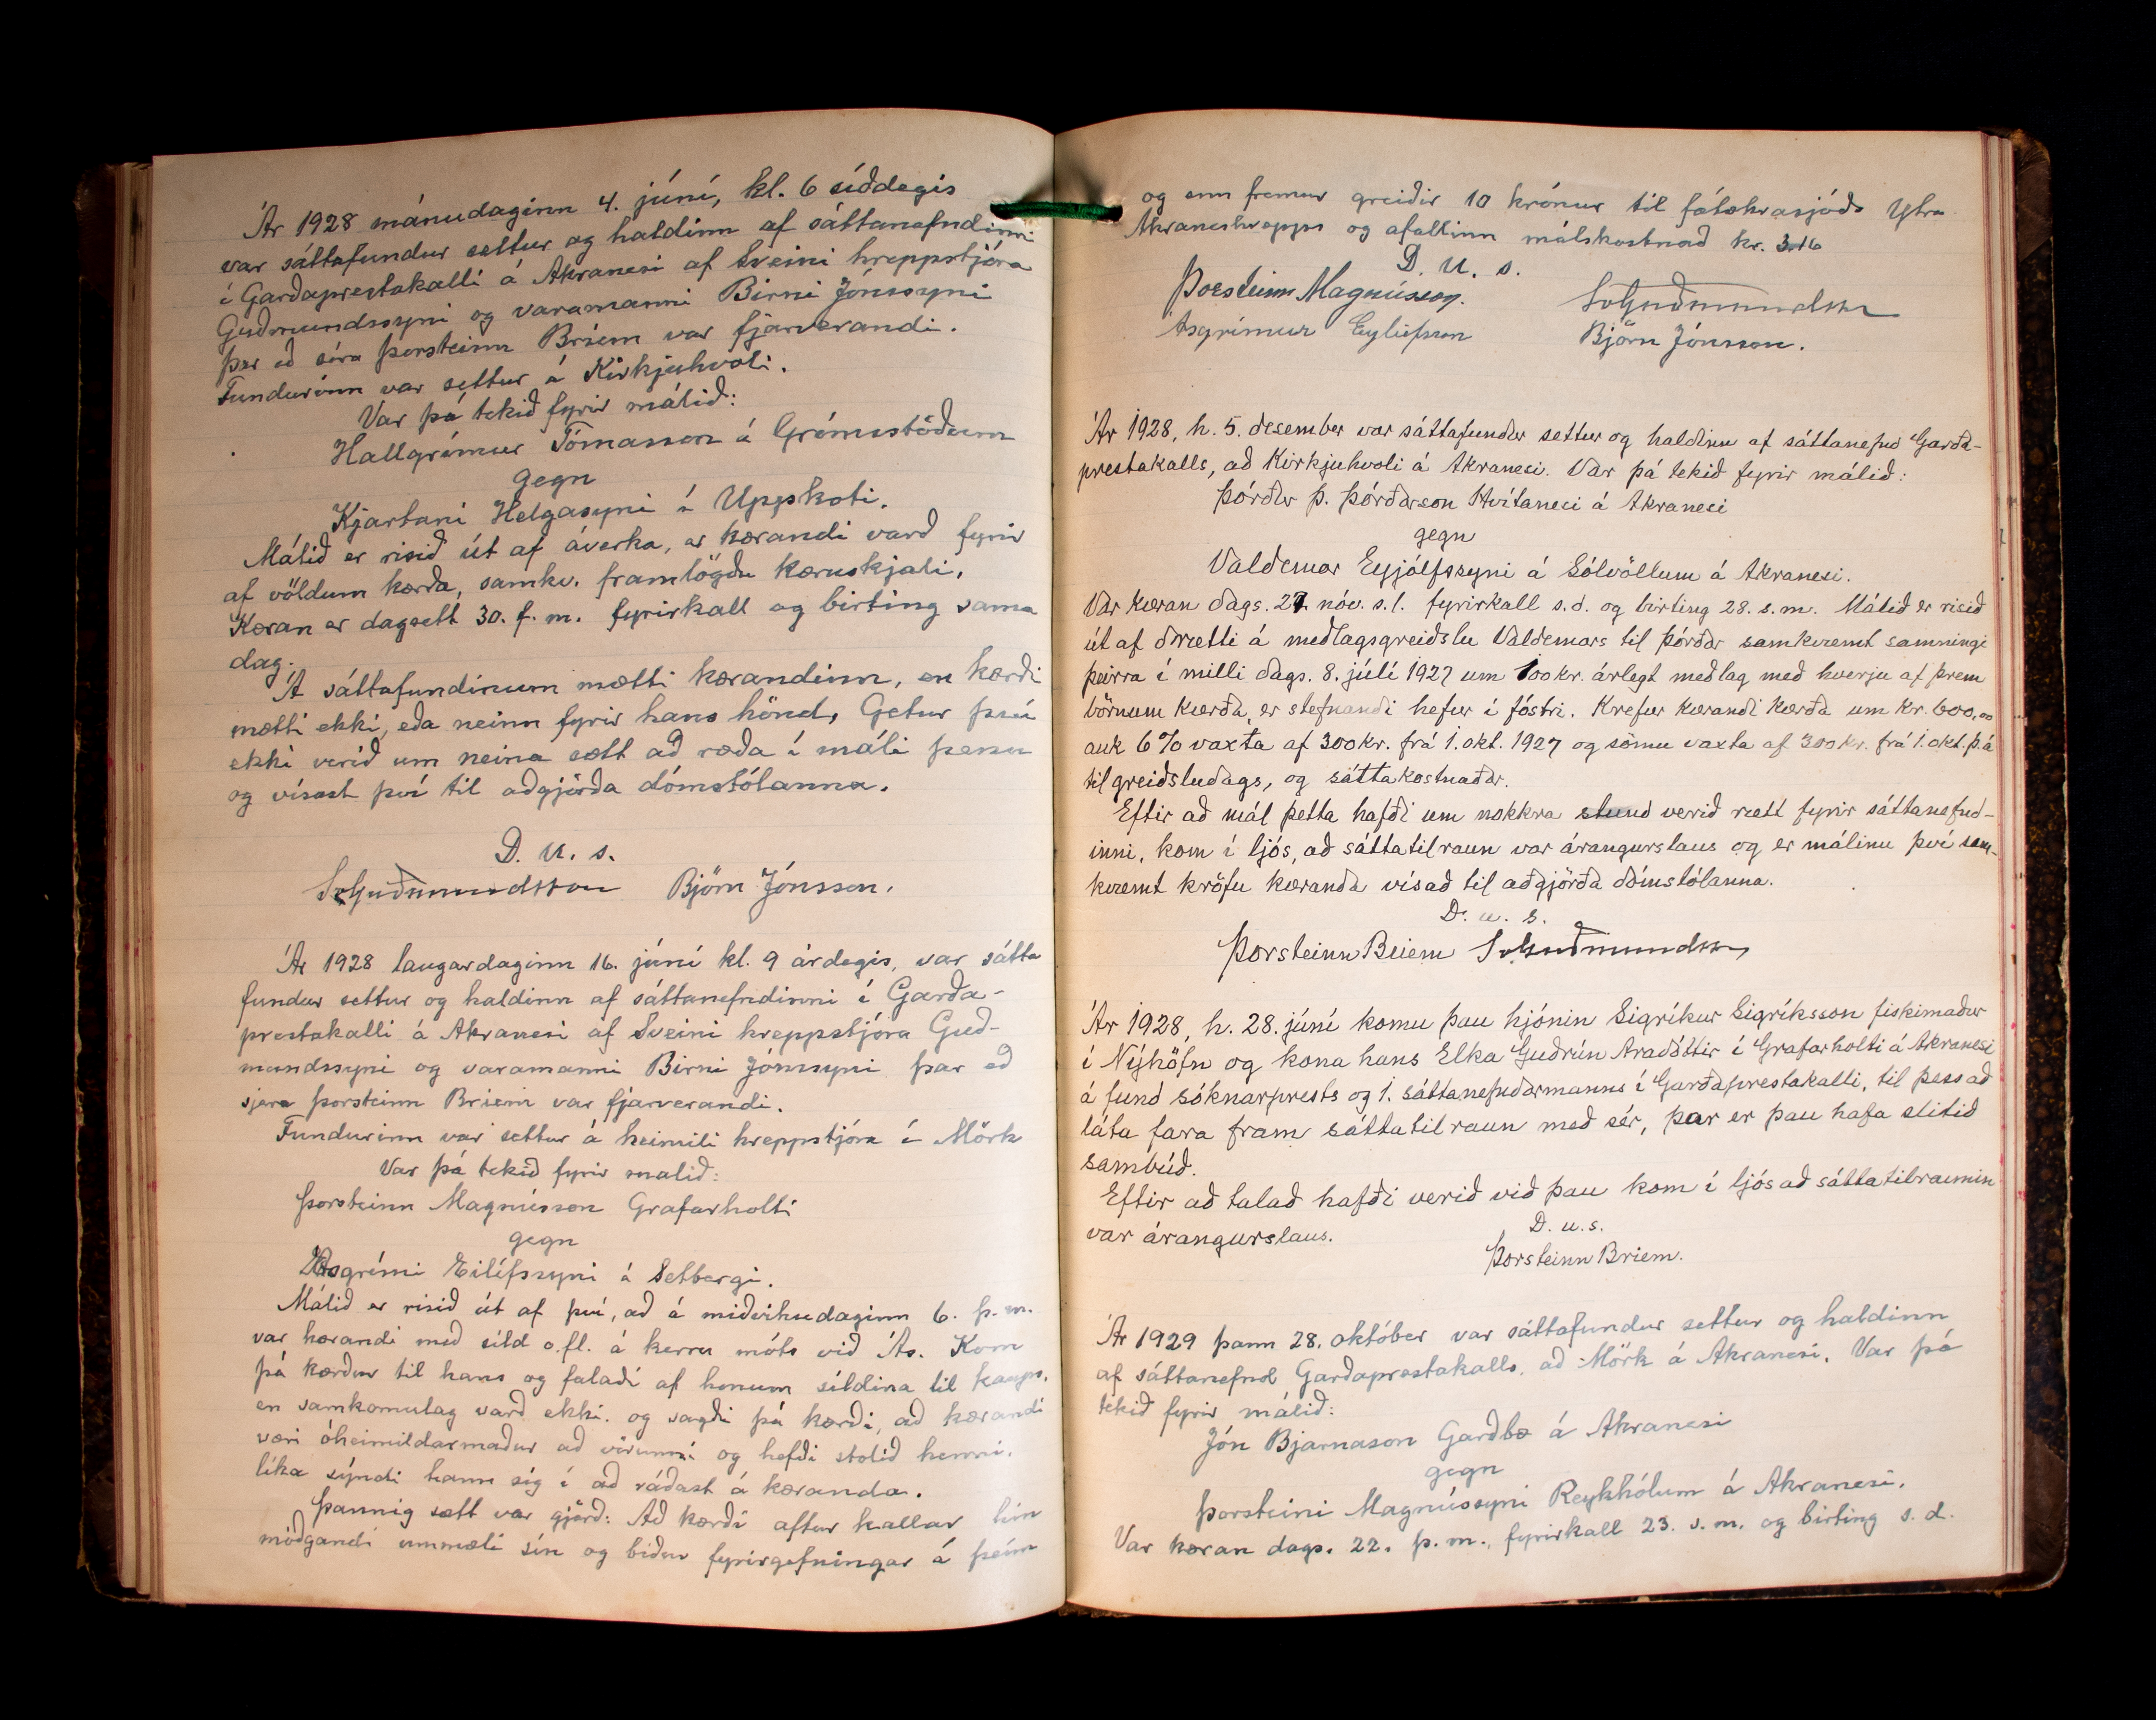 Ár 1928 mánudaginn 4. júní, kl. 6 síðdegis
var sáttafundur settur og haldinn af sáttanefndinni
í Garðaprestakalli á Akranesi af Sveini hreppstjóra
Guðmundssyni og varamanni Birni Jónssyni
þar eð séra Þorsteinn Briem var fjarverandi.
Fundurinn var settur á Kirkjuhvoli.
Var þá tekið fyrir málið:
Hallgrímur Tómasson á Grímsstöðum
gegn
Kjartani Helgasyni í Uppskoti.
Málið er risið út af áverka, er kærandi varð fyrir
af völdum kærða, samkv. framlögðu kæruskjali.
Kæran er dagsett 30. f. m. fyrirkall og birting sama
dag.
Á sáttafundinum mætti kærandinn, en kærði
mætti ekki, eða neinn fyrir hans hönd, Getur því
ekki verið um neina sætt að ræða í máli þessu
og vísast því til aðgjörða dómstólanna.
D. u. s.
SvGuðmundsson Björn Jónsson.
Ár 1928 laugardaginn 16. júní kl. 9 árdegis, var sátta
fundur settur og haldinn af sáttanefndinni í Garða-
prestakalli á Akranesi af Sveini hreppstjóra Guð-
mundssyni og varamanni Birni Jónssyni þar eð
sjera Þorsteinn Briem var fjarverandi.
Fundurinn var settur á heimili hreppstjóra í Mörk
Var þá tekið fyrir malið:
Þorsteinn Magnússon Grafarholti
gegn
Ásgrími Eilífssyni á Setbergi.
Málið er risið út af því, að á miðvikudaginn 6. þ. m.
var kærandi með síld o.fl. á kerru móts við Ás. Kom
þá kærður til hans og falaði af honum síldina til kaups,
en samkomulag varð ekki. og sagði þá kærði, að kærandi
væri óheimildarmaður að vörunni og hefði stolið henni.
líka sýndi hann sig í að ráðast á kæranda.
Þannig sætt var gjörð: Að kærði aftur kallar hin
móðgandi ummæli sín og biður fyrirgefningar á þeim
og enn fremur greiðir 10 krónur til fátækrasjóðs Ytra
Akraneshrepps og áfallinn málskostnað kr. 3.16
D. U. s.
Þorsteinn Magnússon. SvGuðmundsson
Ásgrímur Eylífsson Björn Jónsson.
Ár 1928, h. 5. desember var sáttafundur settur og haldinn af sáttanefnd Garða-
prestakalls, að Kirkjuhvoli á Akranesi. Var þá tekið fyrir málið:
Þórður Þ. Þórðarson Hvítanesi á Akranesi
gegn
Valdemar Eyjólfssyni á Sólvöllum á Akranesi.
Var kæran dags. 27. nóv. s.l. fyrirkall s.d. og birting 28. s.m. Málið er risið
út af drætti á meðlagsgreiðslu Valdemars til Þórðar samkvæmt samningi
þeirra í milli dags. 8. júlí 1927 um 100 kr. árlegt meðlag með hverju af þrem
börnum kærða, er stefnandi hefur í fóstri. Krefur kærandi kærða um kr. 600,00
auk 6% vaxta af 300 kr. frá 1. okt. 1927 og sömu vaxta af 300 kr. frá 1. okt. þ.á
til greiðsludags, og sáttakostnaðar.
Eftir að mál þetta hafði um nokkra stund verið rætt fyrir sáttanefnd-
inni, kom í ljós, að sáttatilraun var árangurslaus og er málinu því sam-
kvæmt kröfu kæranda vísað til aðgjörða dómstólanna.
D. u. s.
Þorsteinn Briem SvGuðmundsson
Ár 1928, h. 28. júní komu þau hjónin Sigríkur Sigríksson fiskimaður
í Nýhöfn og kona hans Elka Guðrún Aradóttir í Grafarholti á Akranesi
á fund sóknarprests og 1. sáttanefndarmanns í Garðaprestakalli, til þess að
láta fara fram sáttatilraun með sér, þar er þau hafa slitið
sambúð.
Eftir að talað hafði verið við þau kom í ljós að sáttatilraunin
var árangurslaus.
D. u. s.
Þorsteinn Briem.
Ár 1929 þann 28. október var sáttafundur settur og haldinn
af sáttanefnd Garðaprestakalls, að Mörk á Akranesi. Var þá
tekið fyrir málið:
Jón Bjarnason Garðbæ á Akranesi
gegn
Þorsteini Magnússyni Reykhólum á Akranesi.
Var kæran dags. 22. þ. m., fyrirkall 23. s. m. og birting s. d.